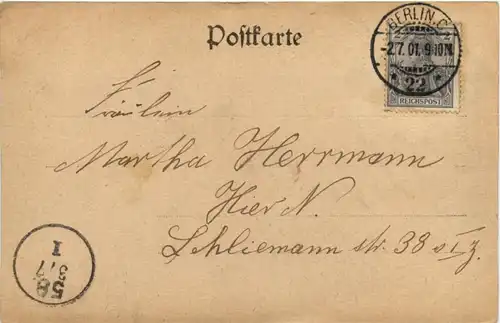 Postkarte
BERLIN, C.
-2.7.01. 9-10N.
* 22 *
2 2
REICHSPOST
Fräulein
Martha Herrmann
Hier N.
Schliemann str. 38
58
3/7
I